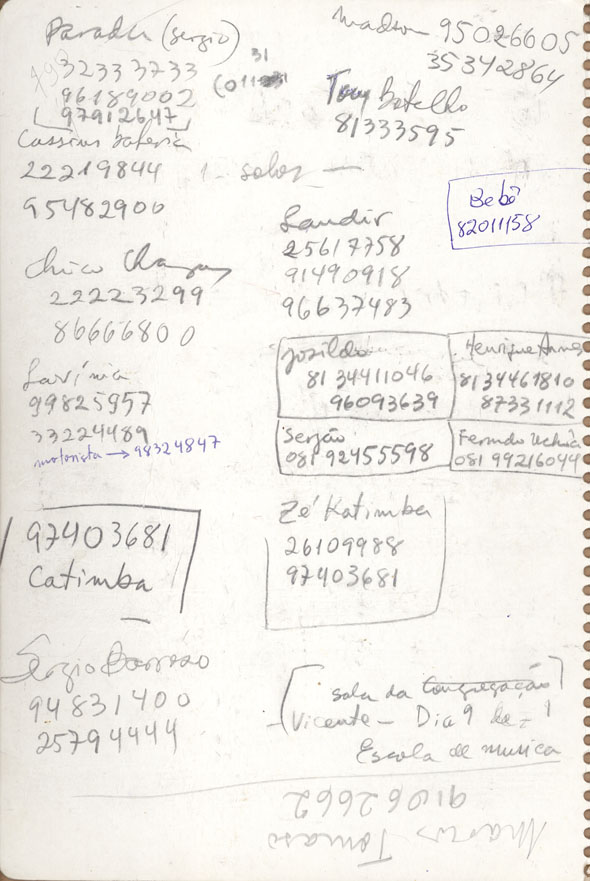 (Sergio)
32333733
96189002
97912647
Cassius bateria
22219844
95482900
Chico
22223299
86666800
Lavínia
99825957
33224489
motorista → 98324847
97403681
Catimba
Sérgio Barroso
94831400
25794444
Madson 95026605
35342864
Tony Botelho
81333595
Bebê
82011158
Landir
25617758
91490918
96637483
Josildo
81 34411046
96093639
Henrique Annes
81 34461810
87331112
Serjão
081 92455598
Fernando Uchôa
081 99216044
Zé Katimba
26109988
97403681
sala da Congregação
Vicente – Dia 9 de 1
Escola de musica
91062662
Tomaso